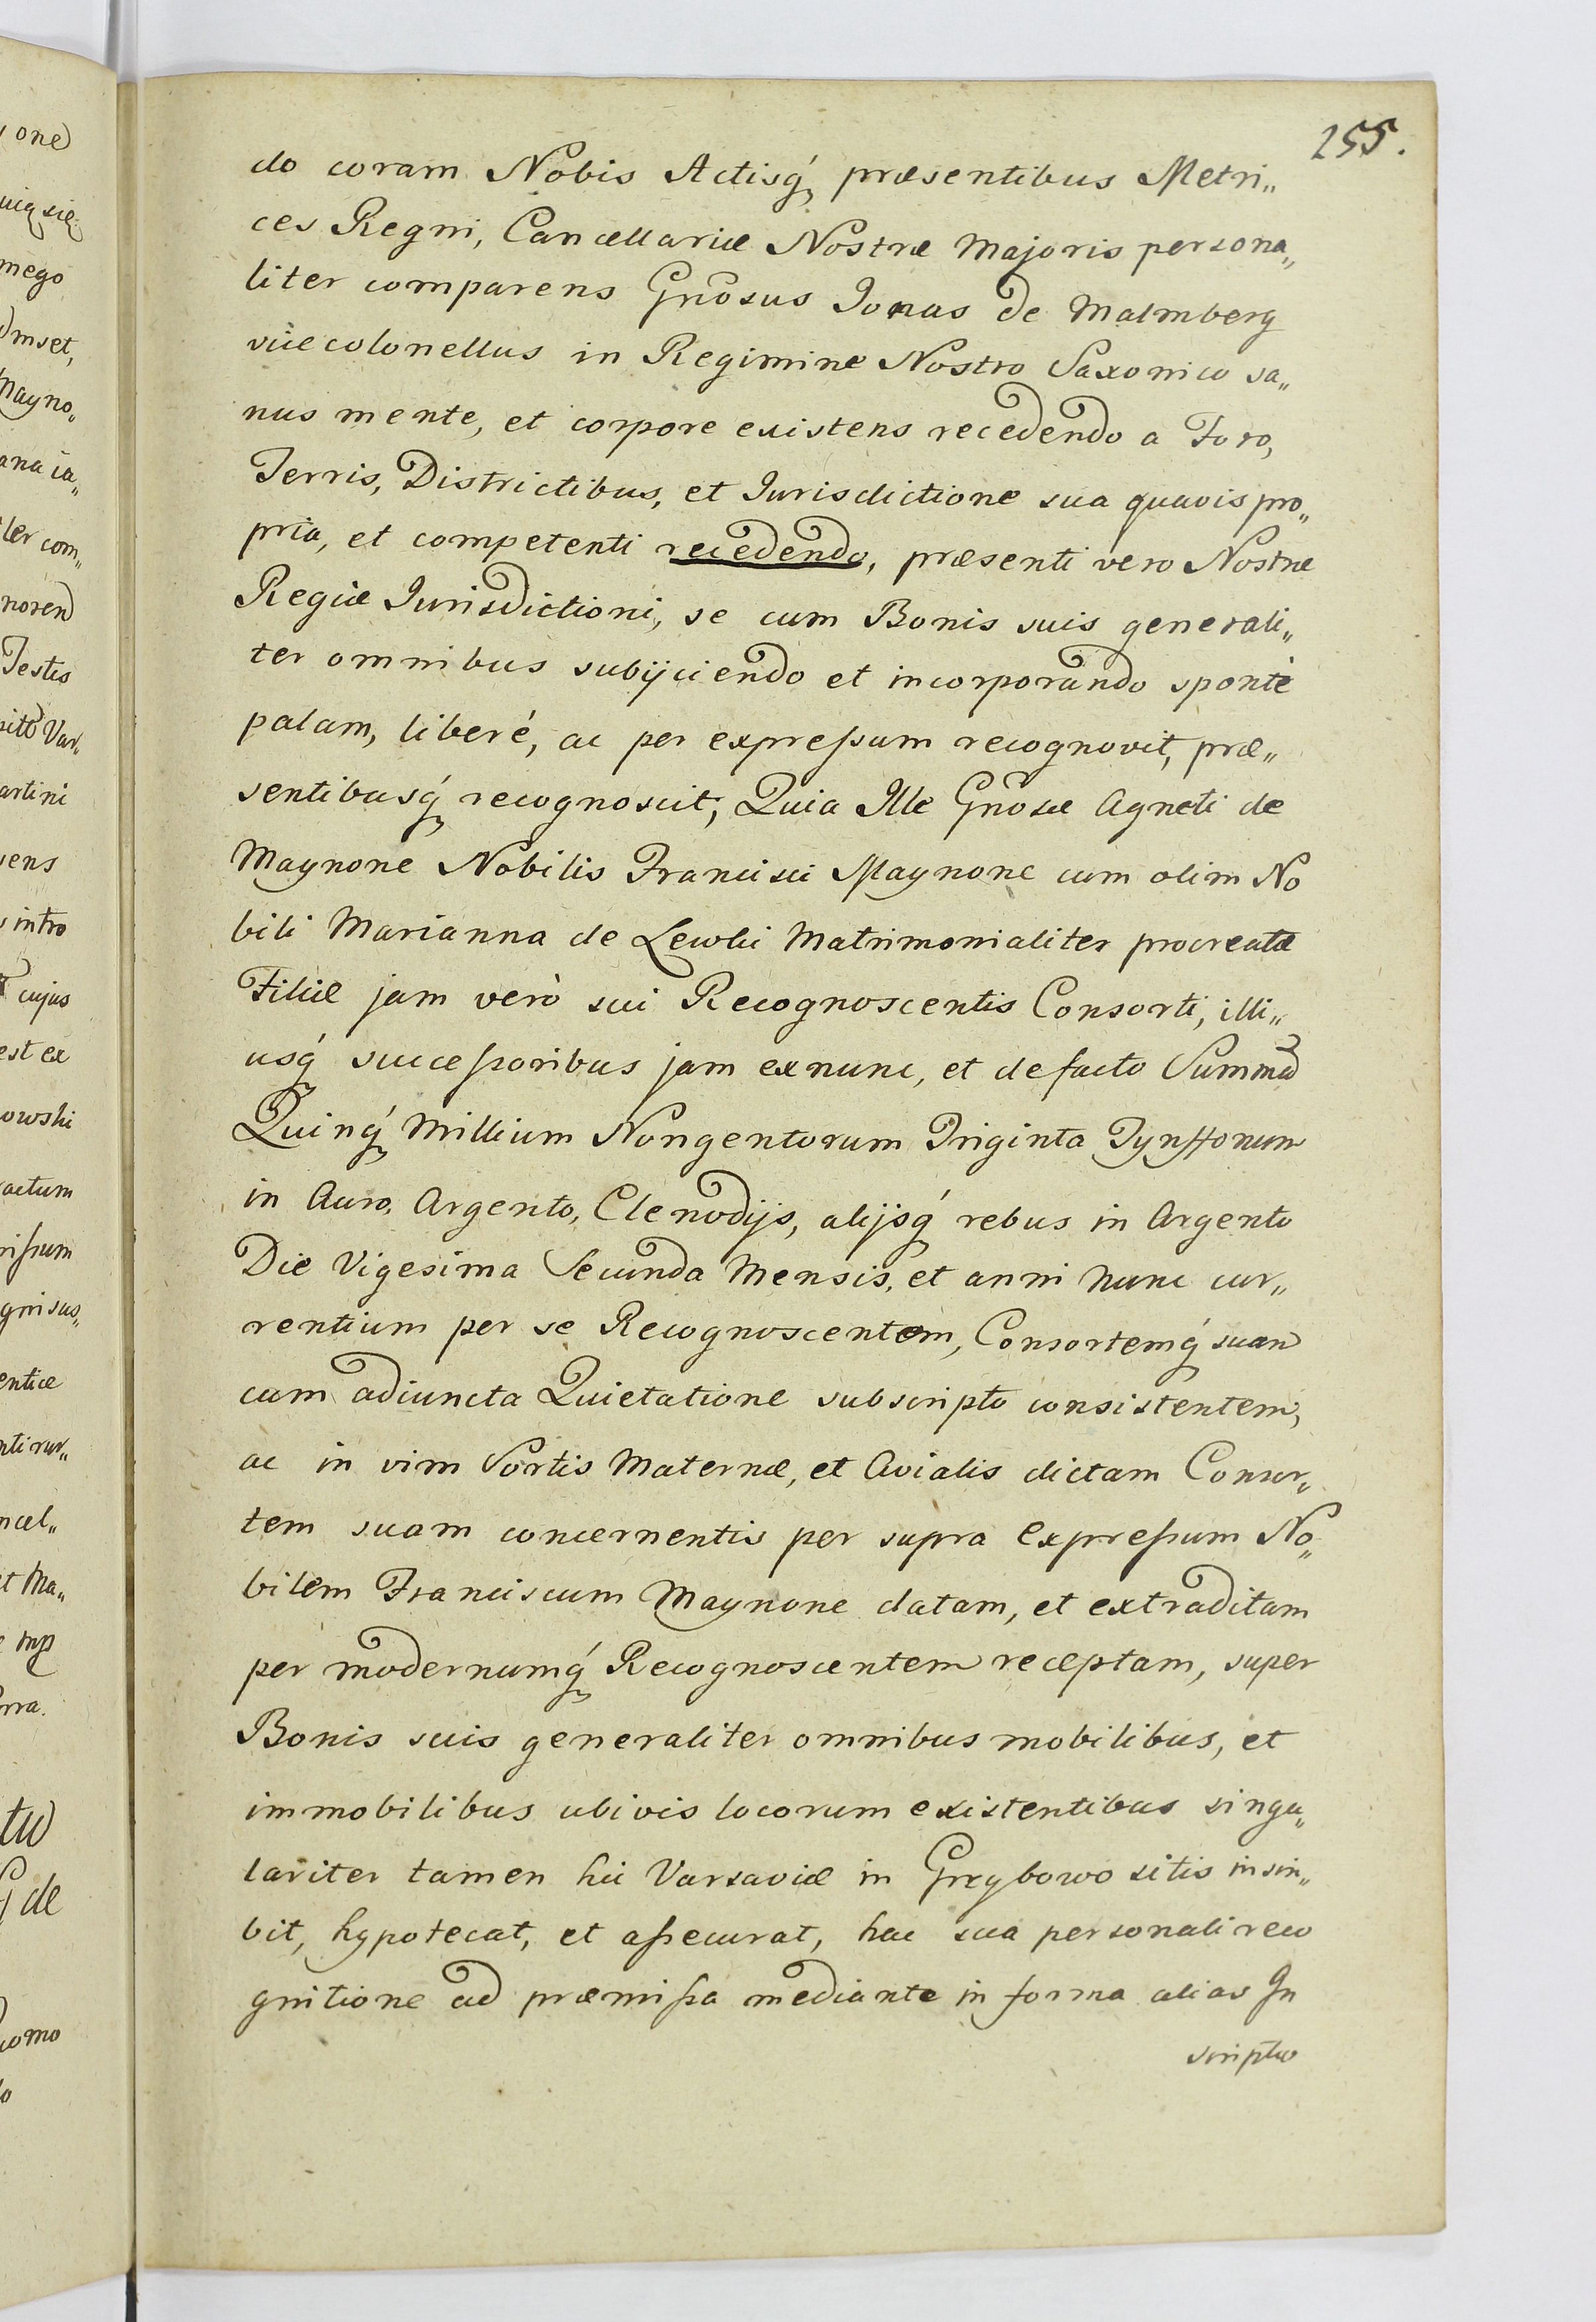 255.
do coram Nobis Actisq́ præsentibus Metri„
ces Regni, Cancellariæ Nostræ Majoris persona„
liter comparens Gnōsus Jonas de Malmberg
vice colonellus in Regimine Nostro Saxonico sa„
nus mente, et corpore existens recedendo a Foro,
Terris, Districtibus, et Jurisdictione sua quavis pro„
pria, et competenti recedendo, præsenti vero Nostræ
Regiæ Jurisdictioni, se cum Bonis suis generali„
ter omnibus subijciendo et incorporando spontè
palam, liberé, ac per expressum recognovit, præ„
sentibusq́ recognoscit, Quia Ille Gnōsæ Agneti de
Maynone Nobilis Francisci Maynone cum olim No
bili Marianna de Lewki Matrimonialiter procreatæ
Filiæ jam verò sui Recognoscentis Consorti, illi„
usq́ successoribus jam exnunc, et de facto Summā
Quinq́ Millium Nongentorum Triginta Tynffonum
in Auro, Argento, Clenodijs, alijsq́ rebus in Argento
Die Vigesima Secunda Mensis, et anni nunc cur„
rentium per se Recognoscentem, Consortemq́ suam
cum adiuncta Quietatione subscripto consistentem,
ac in vim Sortis Maternæ, et Avialis dictam Consor„
tem suam concernentis per supra expressum No„
bilem Franciscum Maynone datam, et extraditam
per modernumq́ Recognoscentem receptam, super
Bonis suis generaliter omnibus mobilibus, et
immobilibus ubivis locorum existentibus singu„
lariter tamen hic Varsaviæ in Grzybowo sitis inscri„
bit, hypotecat, et assecurat, hac sua personali reco
gnitione ad præmissa mediante in forma alias In
scriptio